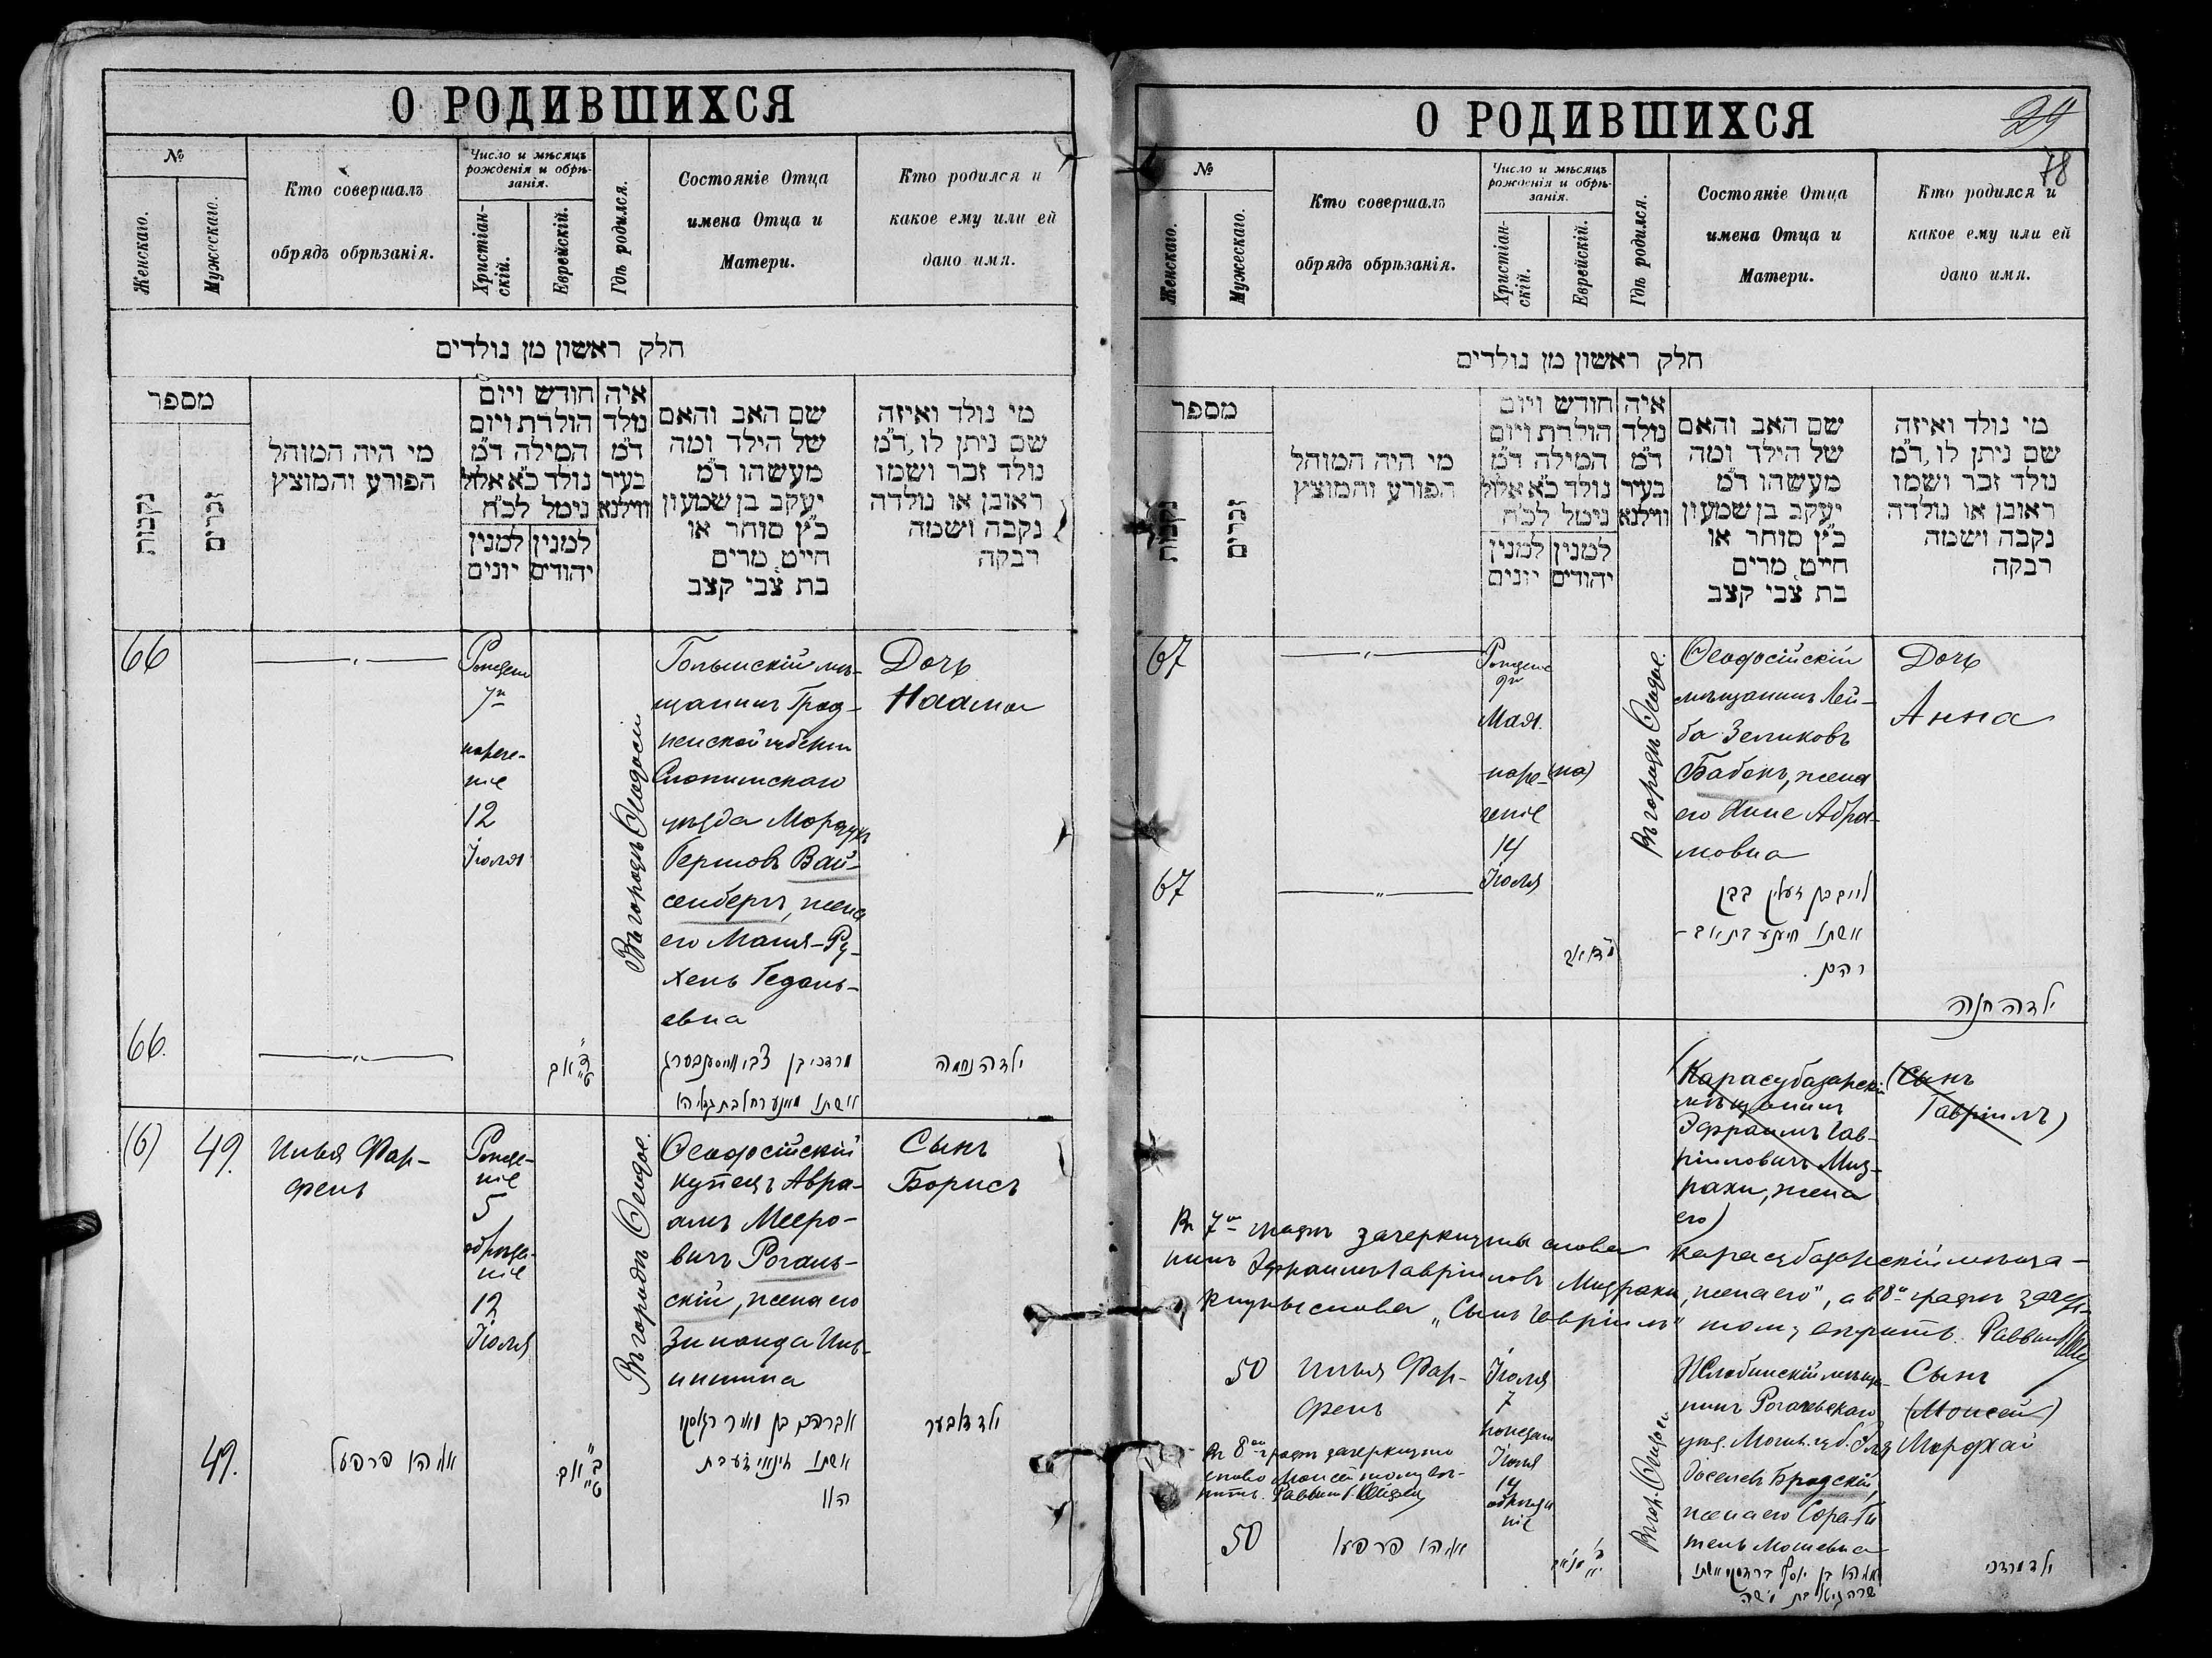 О РОДИВШИХСЯ
№
Женскаго.
Мужескаго.
Кто совершалъ
обрядъ обрѣзанія.
Число и мѣсяцъ
рожденія и обрѣ-
занія.
Христіан-
скій.
Еврейскій.
Гдѣ родился.
Состояніе Отца
имена Отца и
Матери.
Кто родился и
какое ему или ей
дано имя.
חלק ראשון מן נולדים
מספר
נקבות
זכרים
מי היה המוהל
הפורע והמוצץ
חודש ויום
הולרת ויום
המילה ד״מ
נולד כ״א אלול
נימל לכ״ח
למנין
יהודים
למנין
יונים
איה
נולד
ד״מ
בעיר
ווילנא
שם האב והאם
של הילד ומה
מעשהו ד״מ
יעקב בן שמעון
כ״ץ סוחר או
חייט מרים
בת צבי קצב
מי נולד ואיזה
שם ניתן לו, ד״מ
נולד זכר ושמו
ראובן או נולדה
נקבה ושמה
רבקה
66
7го
нарече-
ніе
12
Іюля
Въ городѣ Ѳеодосіи
мѣ-
щанинъ Грод-
ненской губерніи
Слонимскаго
уѣзда Мордухъ
Гершовъ Вай-
сенбергъ, жена
его Маша-Ру-
хель Гедаль-
евна
Дочь
Наама
66.
מרדכי בן צבי ווייסענבערג
ילדה נחמה
(6)
49.
Илья Фар-
фель
Рожде-
ніе
5
обрѣза-
ніе
12
Іюля
Въ городѣ Ѳеодос.
Ѳеодосійскій
купецъ Авра-
амъ Мееро-
вичъ Рогань-
скій, жена его
Зинаида Иль-
инишна
Сынъ
Борисъ
49.
אליהו פרפעל
אברהם בן מאיר
ילד דובער
О РОДИВШИХСЯ
29
78
№
Женскаго.
Мужескаго.
Кто совершалъ
обрядъ обрѣзанія.
Число и мѣсяцъ
рожденія и обрѣ-
занія.
Христіан-
скій.
Еврейскій.
Гдѣ родился.
Состояніе Отца
имена Отца и
Матери.
Кто родился и
какое ему или ей
дано имя.
חלק ראשון מן נולדים
מספר
נקבות
זכרים
מי היה המוהל
הפורע והמוצץ
חודש ויום
הולרת ויום
המילה ד״מ
נולד כ״א אלול
נימל לכ״ח
למנין
יהודים
למנין
יונים
איה
נולד
ד״מ
בעיר
ווילנא
שם האב והאם
של הילד ומה
מעשהו ד״מ
יעקב בן שמעון
כ״ץ סוחר או
חייט מרים
בת צבי קצב
מי נולד ואיזה
שם ניתן לו, ד״מ
נולד זכר ושמו
ראובן או נולדה
נקבה ושמה
רבקה
67
9го
Мая.
наре- (на)
ченіе
14
Іюля
Въ городѣ Ѳеодос.
Ѳеодосійскій
мѣщанинъ Лей-
ба Зеликовъ
Бабенъ, жена
его Хине Абра-
мовна
Дочь
Анна
67
ילדה חנה
(Карасубазарскій
мѣщанинъ
Эфраимъ Гав-
ріиловичъ Миз-
рахи, жена
его)
(Сынъ
Гавріилъ)
Въ 7ой графѣ зачеркнуты слова Карасубазарскій мѣща-
нинъ Эфраимъ Гавріиловъ Мизрахи, жена его", а въ 8ой графѣ зачер-
кнуты слова „Сынъ Гавріилъ" тому вѣрить. Раввинъ
50
Илья Фар-
фель
Іюля
7
Іюля
14
обрѣза
ніе
Въ 8ой графѣ зачеркнуто
слово Моисей тому вѣ-
рить. Раввинъ
мѣща-
нинъ Рогачевскаго
уѣз. Могил. губ. Эля
Іоселевъ Бродскій,
жена его Сора-Ги
тель Мошевна
Сынъ
(Моисей)
Мордхай
50
אליהו פרפעל
ילד מרדכי